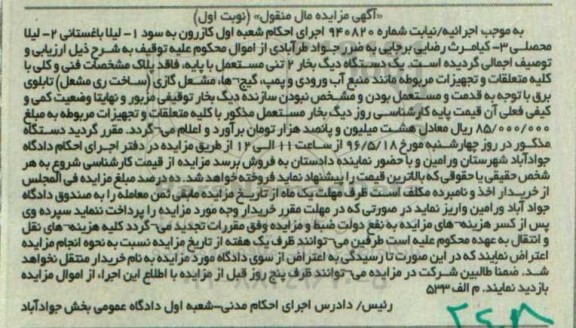 «آگهی مزایده مال منقول» (نوبت اول)
به موجب اجرائیه/نیابت شماره ۹۴۰۸۲۰ اجرای احکام شعبه اول کازرون به سود ۱- لیلا باغستانی ۲- لیلا
محصلی ۳- کیامرث رضایی برجایی به ضرر جواد طرآبادی از اموال محکوم علیه توقیف به شرح ذیل ارزیابی و
توصیف اجمالی گردیده است. یک دستگاه دیگ بخار ۲ تنی مستعمل با پایه، فاقد پلاک مشخصات فنی و کلی با
کلیه متعلقات و تجهیزات مربوطه مانند منبع آب ورودی و پمپ، گیج-ها، مشعل گازی (ساخت ری مشعل) تابلوی
برق با توجه به قدمت و مستعمل بودن و مشخص نبودن سازنده دیگ بخار توقیفی مزبور و نهایتا وضعیت کمی و
کیفی فعلی آن قیمت پایه کارشناسی روز دیگ بخار مستعمل مذکور با کلیه متعلقات و تجهیزات مربوطه به مبلغ
۸۵/۰۰۰/۰۰۰ ریال معادل هشت میلیون و پانصد هزار تومان برآورد و اعلام می-گردد. مقرر گردید دستگاه
مذکور در روز چهارشنبه مورخ ۹۶/۵/۱۸ از ساعت ۱۱ الی ۱۲ از طریق مزایده در دفتر اجرای احکام دادگاه
جوادآباد شهرستان ورامین و با حضور نماینده دادستان به فروش برسد مزایده از قیمت کارشناسی شروع به هر
شخص حقیقی یا حقوقی که بالاترین قیمت را پیشنهاد نماید فروخته خواهد شد. ده درصد مبلغ مزایده فی المجلس
از خریدار اخذ و نامبرده مکلف است ظرف مهلت یک ماه از تاریخ مزایده مابقی ثمن معامله را به صندوق دادگاه
جواد آباد ورامین واریز نماید در صورتی که در مهلت مقرر خریدار وجه مورد مزایده را پرداخت ننماید سپرده وی
پس از کسر هزینه-های مزایده به نفع دولت ضبط و مزایده وفق مقررات تجدید می-گردد کلیه هزینه-های نقل
و انتقال به عهده محکوم علیه است طرفین می-توانند ظرف یک هفته از تاریخ مزایده نسبت به نحوه انجام مزایده
اعتراض نمایند که در این صورت تا رسیدگی به اعتراض از سوی دادگاه مورد مزایده به نام خریدار منتقل نخواهد
شد. ضمنا طالبین شرکت در مزایده می-توانند ظرف پنج روز قبل از مزایده با اطلاع این اجرا، از اموال مزایده
بازدید نمایند. م الف ۵۳۳
رئیس/ دادرس اجرای احکام مدنی-شعبه اول دادگاه عمومی بخش جوادآباد